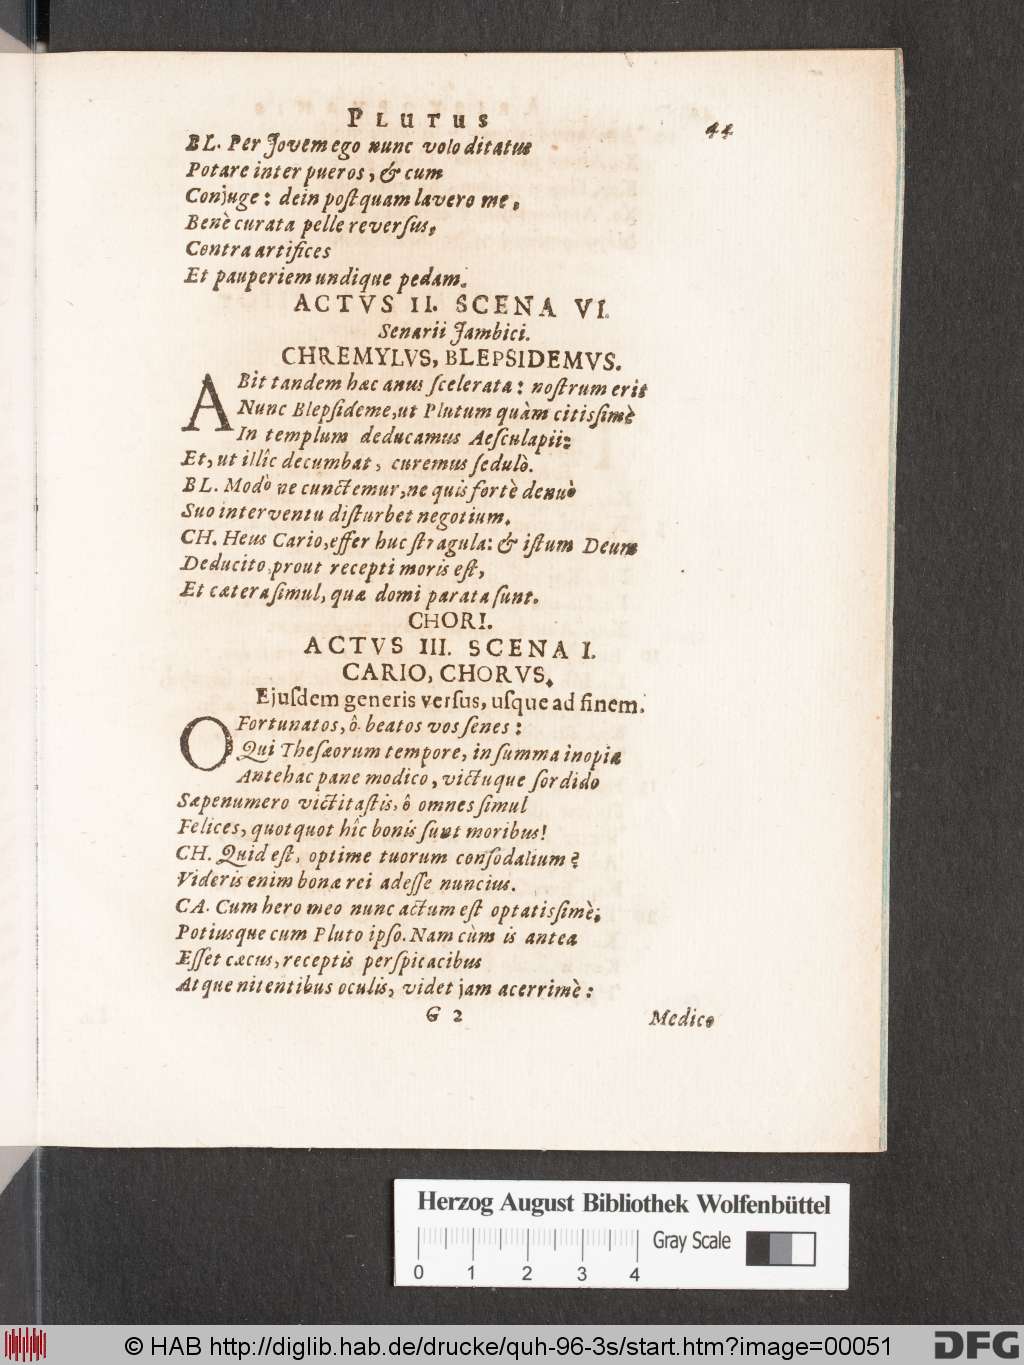 PLUTUS
44
BL. Per Jovem ego nunc volo ditatus
Potare inter pueros, & cum
Conjuge: dein postquam lavero me,
Benè curata pelle reversus,
Contra artifices
Et pauperiem undique pedam.
ACTVS II. SCENA VI.
Senarii Jambici.
CHREMYLVS, BLEPSIDEMVS.
ABit tandem hæc anus scelerata: nostrum erit
Nunc Blepsideme, ut Plutum quàm citissimè
In templum deducamus Aesculapii:
Et, ut illîc decumbat, curemus sedulò.
BL. Modò ne cunctemur, ne quis fortè denuò
Suo interventu disturbet negotium.
CH. Heus Cario, effer huc stragula: & istum Deum
Deducito, prout recepti moris est,
Et cætera simul, quæ domi parata sunt.
CHORI.
ACTVS III. SCENA I.
CARIO, CHORVS.
Ejusdem generis versus, usque ad finem.
O Fortunatos, ô beatos vos senes:
Qui Thesæorum tempore, in summa inopia
Antehac pane modico, victuque sordido
Sæpenumero victitastis, ô omnes simul
Felices, quotquot hîc bonis sunt moribus!
CH. Quid est, optime tuorum consodalium?
Videris enim bonæ rei adesse nuncius.
CA. Cum hero meo nunc actum est optatissimè;
Potiusque cum Pluto ipso. Nam cùm is antea
Esset cæcus, receptis perspicacibus
Atque nitentibus oculis, videt jam acerrimè:
G 2
Medico
Herzog August Bibliothek Wolfenbüttel
Gray Scale
0 1 2 3 4
© HAB http://diglib.hab.de/drucke/quh-96-3s/start.htm?image=00051
DFG